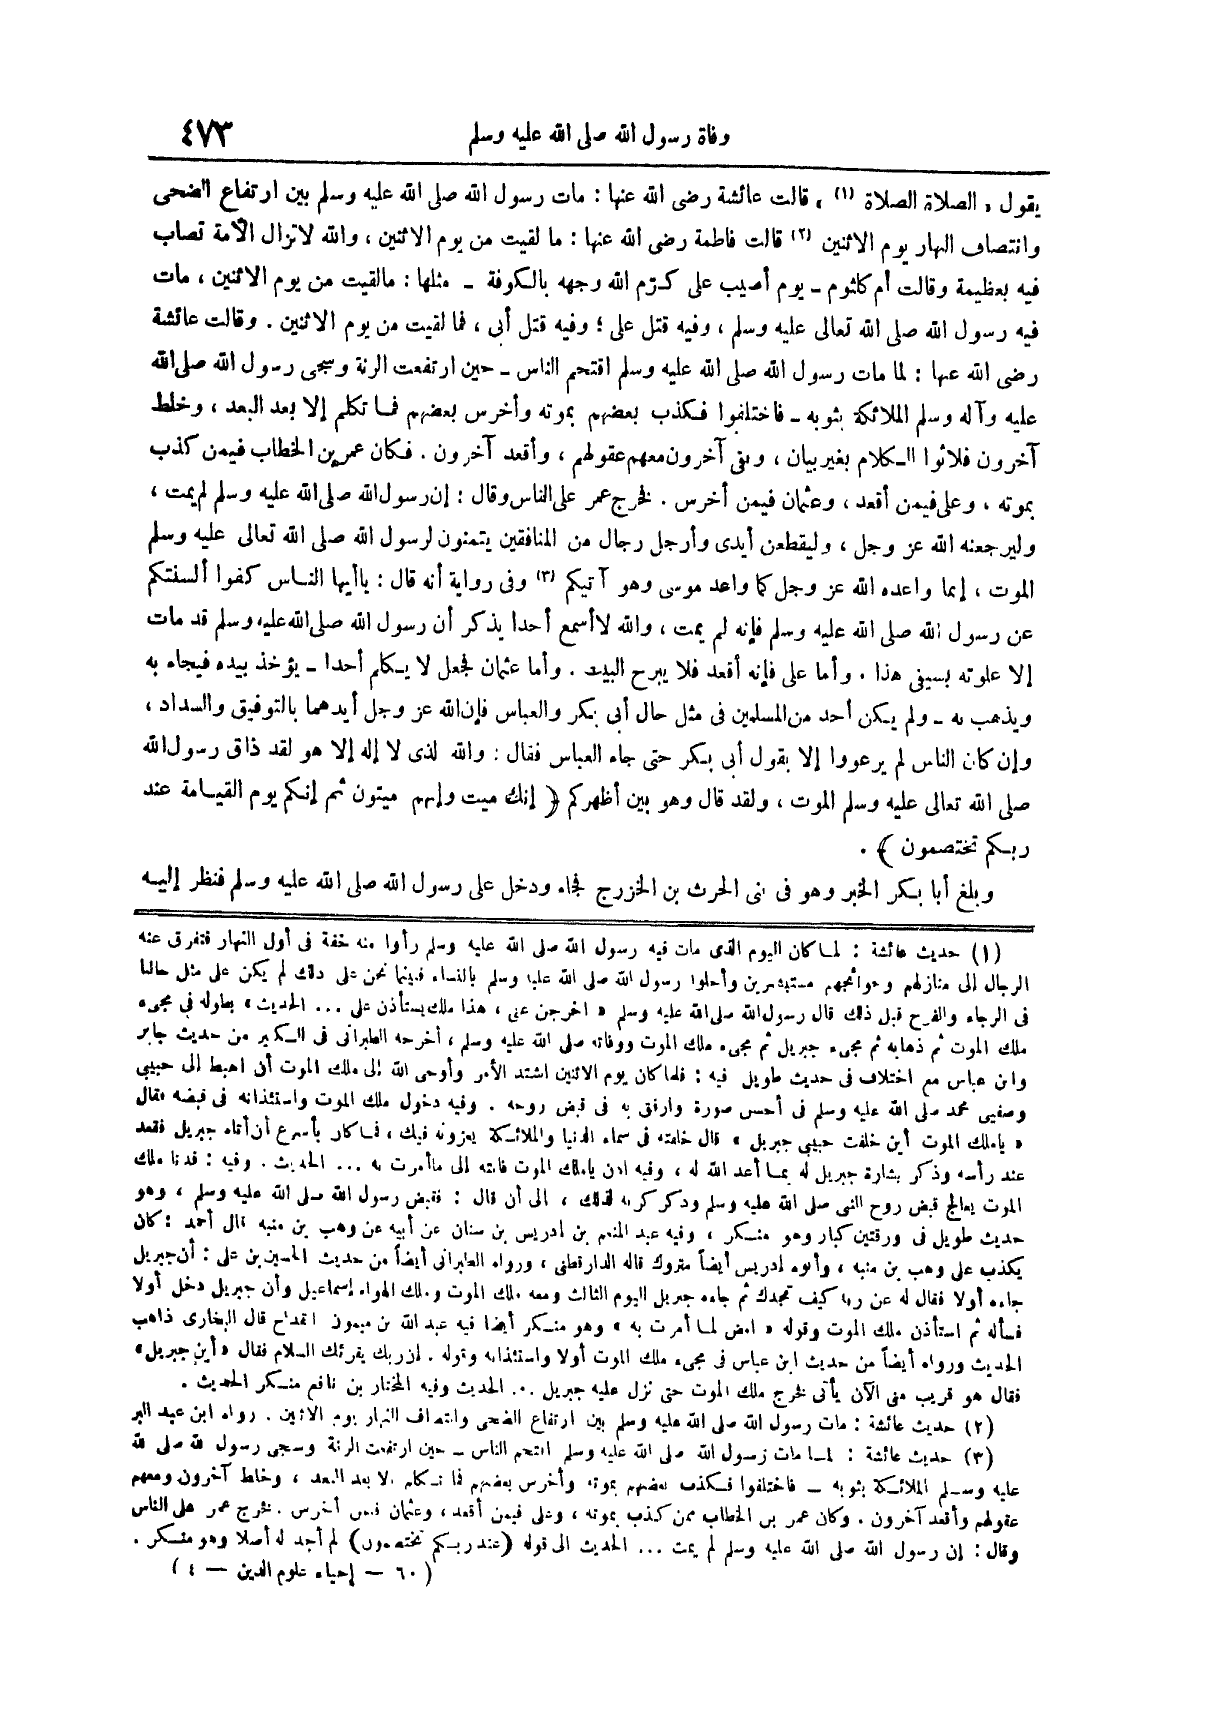 وفاة رسول الله صلى الله عليه وسلم ٤٧٣
يقول « الصلاة الصلاة (١) » قالت عائشة رضى الله عنها : مات رسول الله صلى الله عليه وسلم بين ارتفاع الضحى
وانتصاف النهار يوم الاثنين (٢) قالت فاطمة رضى الله عنها : ما لقيت من يوم الاثنين ، والله لاتزال الأمة تصاب
فيه بعظيمة وقالت أم كلثوم ــ يوم أصيب على كرّم الله وجهه بالكوفة ــ مثلها : مالقيت من يوم الاثنين ، مات
فيه رسول الله صلى الله تعالى عليه وسلم ، وفيه قتل على ؛ وفيه قتل أبى ، فما لقيت من يوم الاثنين . وقالت عائشة
رضى الله عنها : لما مات رسول الله صلى الله عليه وسلم اقتحم الناس ــ حين ارتفعت الرنة وسجى رسول الله صلى الله
عليه وآله وسلم الملائكة بثوبه ــ فاختلفوا فكذب بعضهم بموته وأخرس بعضهم فما تكلم إلا بعد البعد ، وخلط
آخرون فلاثوا الكلام بغير بيان ، وبقى آخرون معهم عقولهم ، وأقعد آخرون . فكان عمر بن الخطاب فيمن كذب
بموته ، وعلى فيمن أقعد ، وعثمان فيمن أخرس . فخرج عمر على الناس وقال : إن رسول الله صلى الله عليه وسلم لم يمت ،
وليرجعنه الله عز وجل ، وليقطعن أيدى وأرجل رجال من المنافقين يتمنون لرسول الله صلى الله تعالى عليه وسلم
الموت ، إنما واعده الله عز وجل كما واعد موسى وهو آتيكم (٣) وفى رواية أنه قال : ياأيها الناس كفوا ألسنتكم
عن رسول الله صلى الله عليه وسلم فإنه لم يمت ، والله لا أسمع أحدا يذكر أن رسول الله صلى الله عليه وسلم قد مات
إلا علوته بسيفى هذا . وأما على فإنه أقعد فلا يبرح البيت . وأما عثمان فجعل لا يكلم أحدا ــ يؤخذ بيده فيجاء به
ويذهب به ــ ولم يكن أحد من المسلمين فى مثل حال أبى بكر والعباس فإن الله عز وجل أيدهما بالتوفيق والسداد ،
وإن كان الناس لم يرعووا إلا بقول أبى بكر حتى جاء العباس فقال : والله لذى لا إله إلا هو لقد ذاق رسول الله
صلى الله تعالى عليه وسلم الموت ، ولقد قال وهو بين أظهركم ﴿ إنك ميت وإنهم ميتون ثم إنكم يوم القيامة عند
ربكم تختصمون ﴾ .
وبلغ أبا بكر الخبر وهو فى بنى الحرث بن الخزرج فجاء ودخل على رسول الله صلى الله عليه وسلم فنظر إليه
(١) حديث عائشة : لما كان اليوم الذى مات فيه رسول الله صلى الله عليه وسلم رأوا منه خفة فى أول النهار فتفرق عنه
الرجال إلى منازلهم وحوائجهم مستبشرين وأخلوا رسول الله صلى الله عليه وسلم بالنساء فبينما نحن على ذلك لم يكن على مثل حالنا
فى الرجاء والفرح قبل ذلك قال رسول الله صلى الله عليه وسلم « اخرجن عنى ، هذا ملك يستأذن على ... الحديث » بطوله فى مجىء
ملك الموت ثم ذهابه ثم مجىء جبريل ثم مجىء ملك الموت ووفاته صلى الله عليه وسلم ، أخرجه الطبرانى فى الكبير من حديث جابر
وابن عباس مع اختلاف فى حديث طويل فيه : فلما كان يوم الاثنين اشتد الأمر وأوحى الله إلى ملك الموت أن اهبط إلى حبيبى
وصفيى محمد صلى الله عليه وسلم فى أحسن صورة وارفق به فى قبض روحه . وفيه دخول ملك الموت واستئذانه فى قبضه فقال
« ياملك الموت أين خلفت حبيبى جبريل » قال خلفته فى سماء الدنيا والملائكة يعزونه فيك ، فما كان بأسرع أن أتاه جبريل فقعد
عند رأسه وذكر بشارة جبريل له بما أعد الله له ، وفيه ادن ياملك الموت فانته إلى ماأمرت به ... الحديث . وفيه : فدنا ملك
الموت يعالج قبض روح النبى صلى الله عليه وسلم وذكر كربه لذلك ، الى أن قال : فقبض رسول الله صلى الله عليه وسلم ، وهو
حديث طويل فى ورقتين كبار وهو منكر ، وفيه عبد المنعم بن ادريس بن سنان عن أبيه عن وهب بن منبه قال أحمد : كان
يكذب على وهب بن منبه ، وأبوه ادريس أيضاً متروك قاله الدارقطنى ، ورواه الطبرانى أيضاً من حديث الحسين بن على : أن جبريل
جاءه أولا فقال له عن ربه كيف تجدك ثم جاءه جبريل اليوم الثالث ومعه ملك الموت وملك الهواء إسماعيل وأن جبريل دخل أولا
فسأله ثم استأذن ملك الموت وقوله « امض لما أمرت به » وهو منكر أيضا فيه عبد الله بن ميمون القداح قال البخارى ذاهب
الحديث ورواه أيضاً من حديث ابن عباس فى مجىء ملك الموت أولا واستئذانه وقوله . إن ربك يقرئك السلام فقال «أين جبريل»
فقال هو قريب منى الآن يأتى فخرج ملك الموت حتى نزل عليه جبريل ... الحديث وفيه المختار بن نافع منكر الحديث .
(٢) حديث عائشة : مات رسول الله صلى الله عليه وسلم بين ارتفاع الضحى وانتصاف النهار يوم الاثنين . رواه ابن عبد البر
(٣) حديث عائشة : لما مات رسول الله صلى الله عليه وسلم اقتحم الناس ــ حين ارتفعت الرنة وسجى رسول لله صلى لله
عليه وسلم الملائكة بثوبه ــ فاختلفوا فكذب بعضهم بموته وأخرس بعضهم فما تكلم إلا بعد البعد ، وخلط آخرون ومعهم
عقولهم وأقعد آخرون . وكان عمر بن الخطاب ممن كذب بموته ، وعلى فيمن أقعد ، وعثمان فيمن أخرس . فخرج عمر على الناس
وقال : إن رسول الله صلى الله عليه وسلم لم يمت ... الحديث الى قوله (عند ربكم تختصمون) لم أجد له أصلا وهو منكر .
( ٦٠ — إحياء علوم الدين — ٤ )